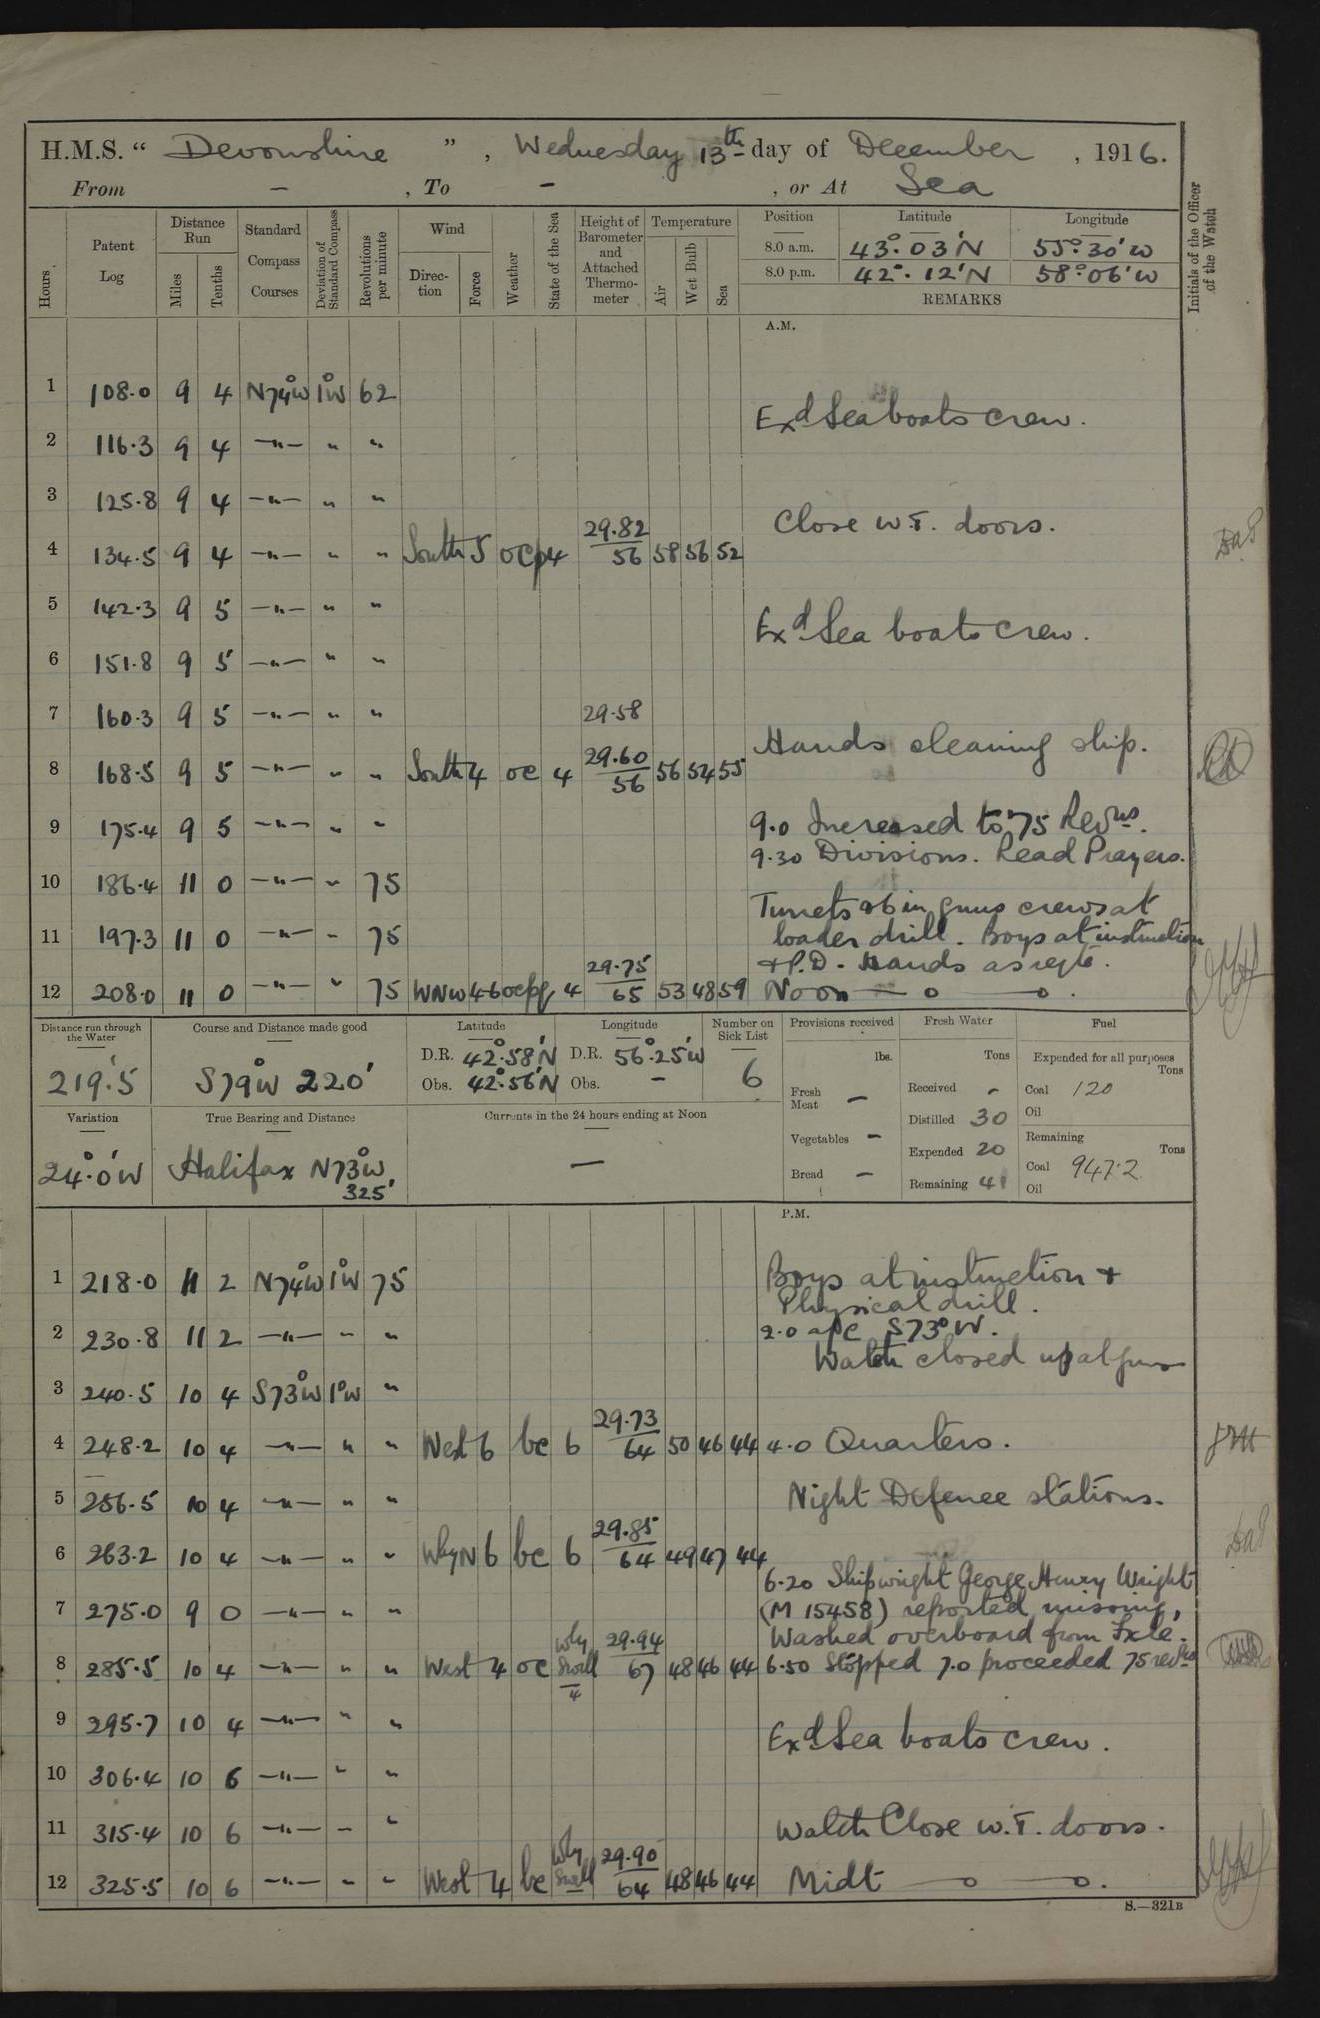 H.M.S. “ Devonshire ” , Wednesday 13th day of December , 1916.
From - , To - , or At Sea
Hours
Patent Log
Distance Run
Miles
Tenths
Standard Compass Courses
Deviation of Standard Compass
Revolutions per minute
Wind
Direc-tion
Force
Weather
State of the Sea
Height of Barometer and Attached Thermo-meter
Temperature
Air
Wet Bulb
Sea
Position Latitude Longitude
8.0 a.m. 43°.03'N 55°.30'W
8.0 p.m. 42°.12'N 58°.06'W
REMARKS
Initials of the Officer of the Watch
A.M.
1 108.0 9 4 N74°W 1°W 62
Exd Sea boats crew.
2 116.3 9 4 —"— " "
3 125.8 9 4 —"— " "
Close W.T. doors.
4 134.5 9 4 —"— " " South 5 ocp 4 29.82/56 58 56 52
5 142.3 9 5 —"— " "
Exd Sea boats crew.
6 151.8 9 5 —"— " "
7 160.3 9 5 —"— " " 29.58
Hands cleaning ship.
8 168.5 9 5 —"— " " South 4 oc 4 29.60/56 56 54 55
9 175.4 9 5 —"— " "
9.0 Increased to 75 Revns.
9.30 Divisions. Read Prayers.
10 186.4 11 0 —"— " 75
Turrets & 6 in guns crews at
11 197.3 11 0 —"— " 75
loader drill. Boys at instruction
& P.D. Hands as reqte.
12 208.0 11 0 —"— " 75 WNW 4-6 ocpq 4 29.75/65 53 48 59 Noon — o — o.
Distance run through the Water
219'.5
Course and Distance made good
S79°W 220'
Latitude
D.R. 42°.58'N
Obs. 42°.56'N
Longitude
D.R. 56°.25'W
Obs. -
Number on Sick List
6
Provisions received
lbs.
Fresh Meat —
Vegetables -
Bread —
Fresh Water
Tons
Received -
Distilled 30
Expended 20
Remaining 41
Fuel
Expended for all purposes
Tons
Coal 120
Oil
Remaining
Tons
Coal 947.2
Oil
Variation
24°.0'W
True Bearing and Distance
Halifax N73°W
325'
Currents in the 24 hours ending at Noon
—
P.M.
1 218.0 11 2 N74°W 1°W 75
Boys at instruction &
Physical drill.
2 230.8 11 2 —"— " "
2.0 a/c S73°W.
Watch closed up at guns
3 240.5 10 4 S73°W 1°W "
4 248.2 10 4 —"— " " West 6 bc 6 29.73/64 50 46 44 4.0 Quarters.
5 256.5 10 4 —"— " "
Night Defence stations.
6 263.2 10 4 —"— " " WbyN 6 bc 6 29.85/64 49 47 44
6.20 Shipwright George Henry Wright
7 275.0 9 0 —"— " "
(M 15458) reported missing,
Washed overboard from Fxle.
8 285.5 10 4 —"— " " West 4 oc Wly Swell 4 29.94/67 48 46 44 6.50 Stopped 7.0 proceeded 75 revns
9 295.7 10 4 —"— " "
Exd Sea boats crew.
10 306.4 10 6 —"— " "
11 315.4 10 6 —"— " "
Watch Close W.T. doors.
12 325.5 10 6 —"— " " West 4 bc Wly Swell 29.90/64 48 46 44 Midt — o — o.
S.—321B